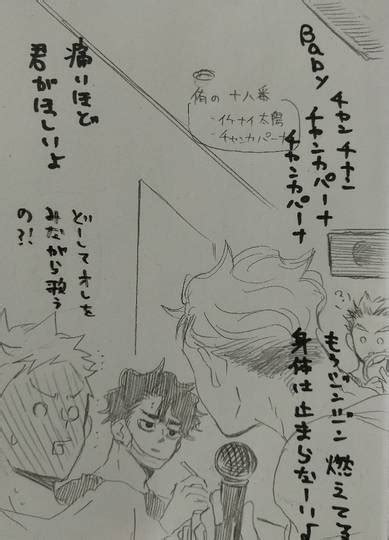 Baby チャンチャン
チャンカパーナ
チャンカパーナ
侑の十八番
・イケナイ太陽
・チャンカパーナ
痛いほど
君がほしいよ
もうジンジン燃えてる
身体は止まらなーいよ
どーしてオレを
みながら歌う
の?!